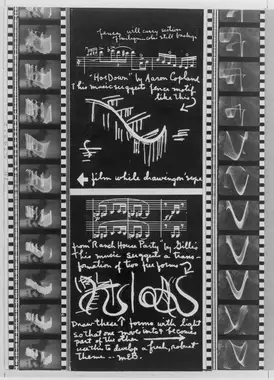 fence will carry action
"Hoe Down" by Aaron Copland
This music suggests fence motif
like this
film while drawing on rope
from Ranch House Party by Gillis
This music suggests a trans-
formation of two free forms
Draw these forms with light
so that one moves into & becomes
part of the other
with to develop a fresh, robust
theme -- M.E.B.